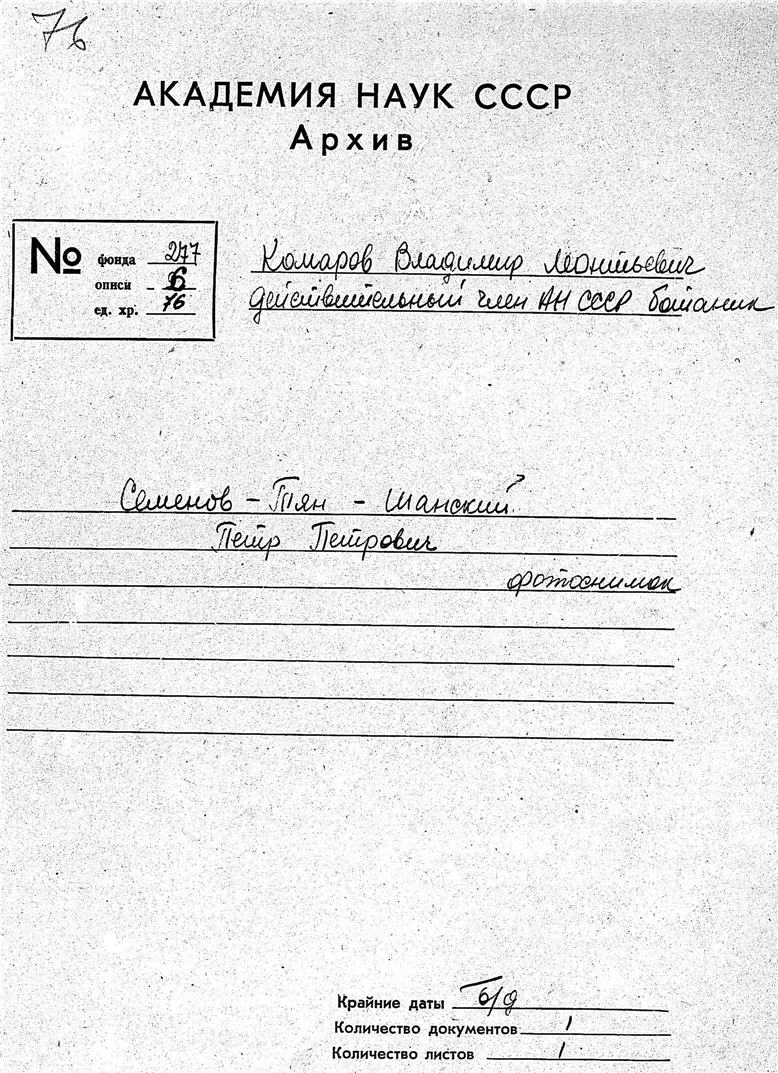 76
АКАДЕМИЯ НАУК СССР
Архив
№ фонда 277
описи 6
ед. хр. 76
Комаров Владимир Леонтьевич
действительный член АН СССР ботаник
Семенов - Тян - Шанский
Петр Петрович
фотоснимок
Крайние даты б/д
Количество документов 1
Количество листов 1